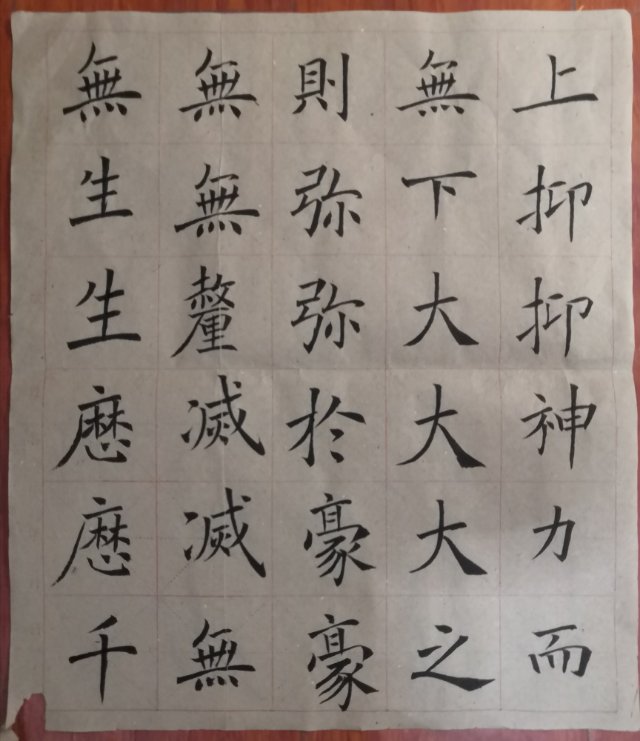 上抑抑神力而
無下大大大之
則弥弥於豪豪
無無釐滅滅無
無生生歷歷千